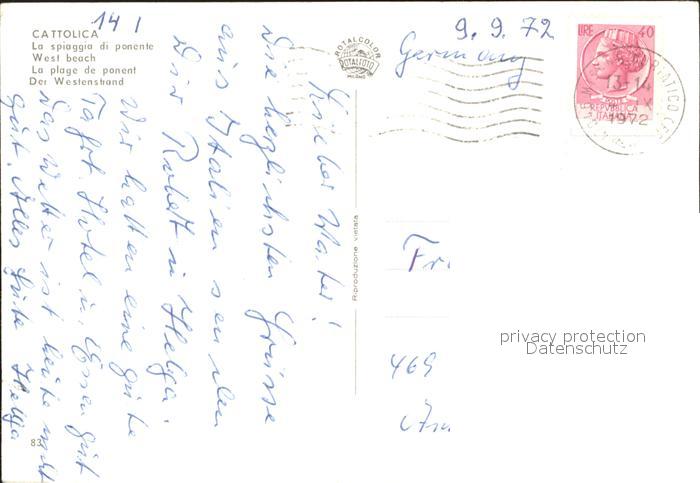 14 1
CATTOLICA
La spiaggia di ponente
West beach
La plage de ponent
Der Westenstrand
ROTALCOLOR
ROTALFOTO
MILANO
9. 9. 72
Germany
LIRE 40
POSTE
REPVBBLICA
ITALIANA
1972
Lieber Vater!
Die herzlichsten Grüsse
aus Italien senden
Dir Rudolf u. Helga.
Wir hatten eine gute
Fahrt. Hotel u. Essen gut
das Wetter ist heute nicht
gut. Alles Gute Helga
Riproduzione vietata
Fr.
469
83
privacy protection
Datenschutz